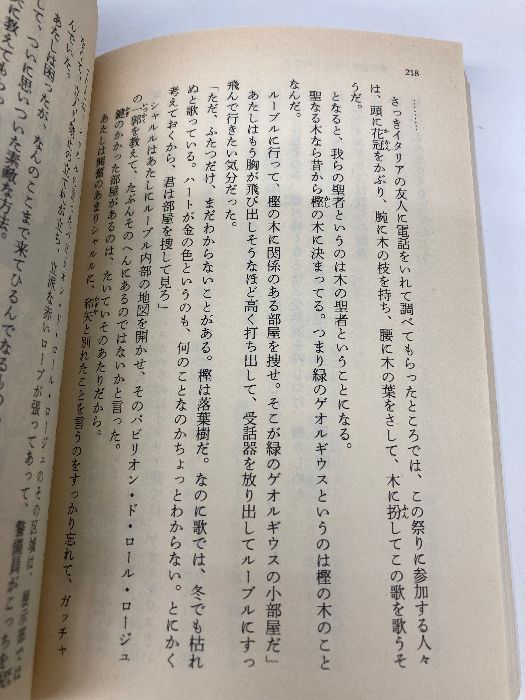 218
…………
さっきイタリアの友人に電話をいれて調べてもらったところでは、この祭りに参加する人々
は、頭に花冠をかぶり、腕に木の枝を持ち、腰に木の葉をさして、木に扮してこの歌を歌うそ
うだ。
となると、我らの聖者というのは木の聖者ということになる。
聖なる木なら昔から樫の木に決まってる。つまり緑のゲオルギウスというのは樫の木のこと
なんだ。
ルーブルに行って、樫の木に関係のある部屋を捜せ。そこが緑のゲオルギウスの小部屋だ」
あたしはもう胸が飛び出しそうなほど高く打ち出して、受話器を放り出してルーブルにすっ
飛んで行きたい気分だった。
「ただ、ふたつだけ、まだわからないことがある。樫は落葉樹だ。なのに歌では、冬でも枯れ
ぬと歌っている。ハートが金の色というのも、何のことなのかちょっとわからない。とにかく
考えておくから、君は部屋を捜して見ろ」
シャルルはあたしにルーブル内部の地図を開かせ、そのパビリオン・ド・ロール・ロージュ
の一郭を教えて、たぶんそのへんにあるのではないかと言った。
鍵のかかった部屋があるのは、たいていそのあたりだから。
あたしは興奮のあまりシャルルに、和矢と別れたことを言うのをすっかり忘れて、ガッチャ
んでいた。
ロール・ロージュのその区域は、展示部では
立派な赤いロープが張ってあって、警備員がこっちを
あたしは困ったが、なんのここまで来てひるんでなるもの
して、ついに思いついた素敵な方法。
に教えてもらっ